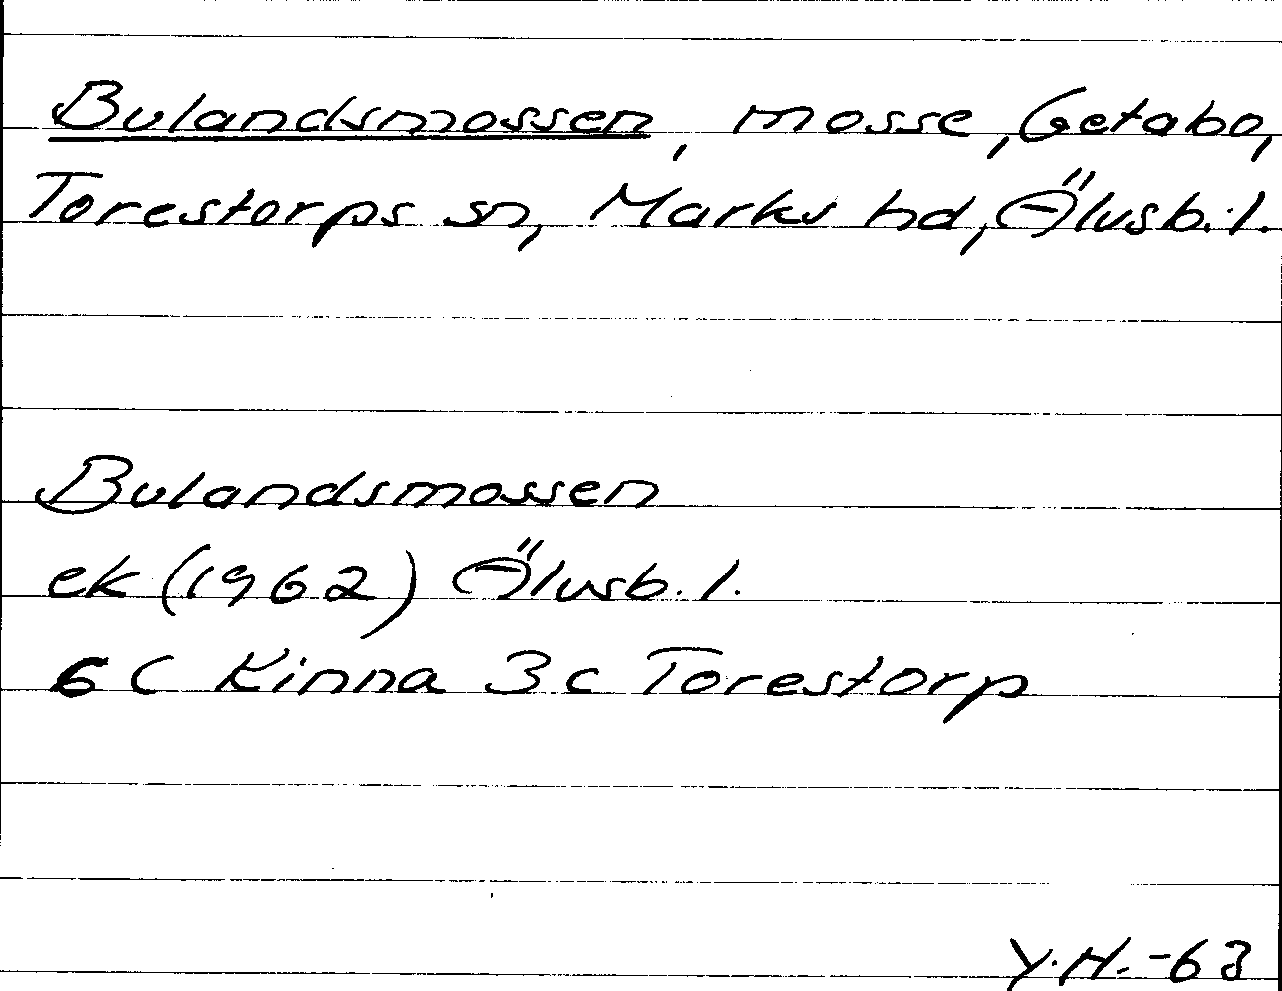 Bulandsmossen, mosse, Getabo,
Torestorps sn, Marks hd, Älvsb. l.
Bulandsmossen
ek (1962) Älvsb. l.
6 C Kinna 3 c Torestorp
Y.H. -63